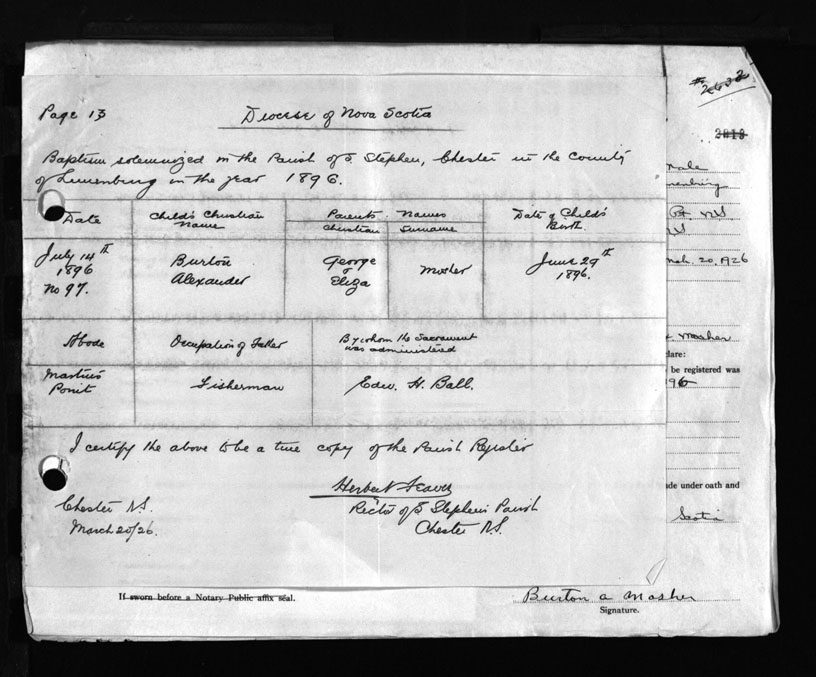 Page 13
Diocese of Nova Scotia
Baptism solemnized in the Parish of S. Stephen, Chester in the County
of Lunenburg in the year 1896.
Date
Child's Christian
Name
Parents Names
Christian Surname
Date of Child's
Birth.
July 14th
1896
No 97.
Burton
Alexander
George
&
Eliza
Mosher
June 29th
1896.
Abode
Occupation of Father
By whom the Sacrament
was administered
Martin's
Ponit
Fisherman
Edw. H. Ball.
I certify the above to be a true copy of the Parish Register
Herbert
Rector of S Stephens Parish
Chester N.S.
Chester N.S.
March 20/26.
If sworn before a Notary Public affix seal.
Burton A Mosher
Signature.
#2632
2819
male
nenburg
Pt. NS
NS
ch. 20, 1926
Mosher
lare:
be registered was
96
de under oath and
Scotia